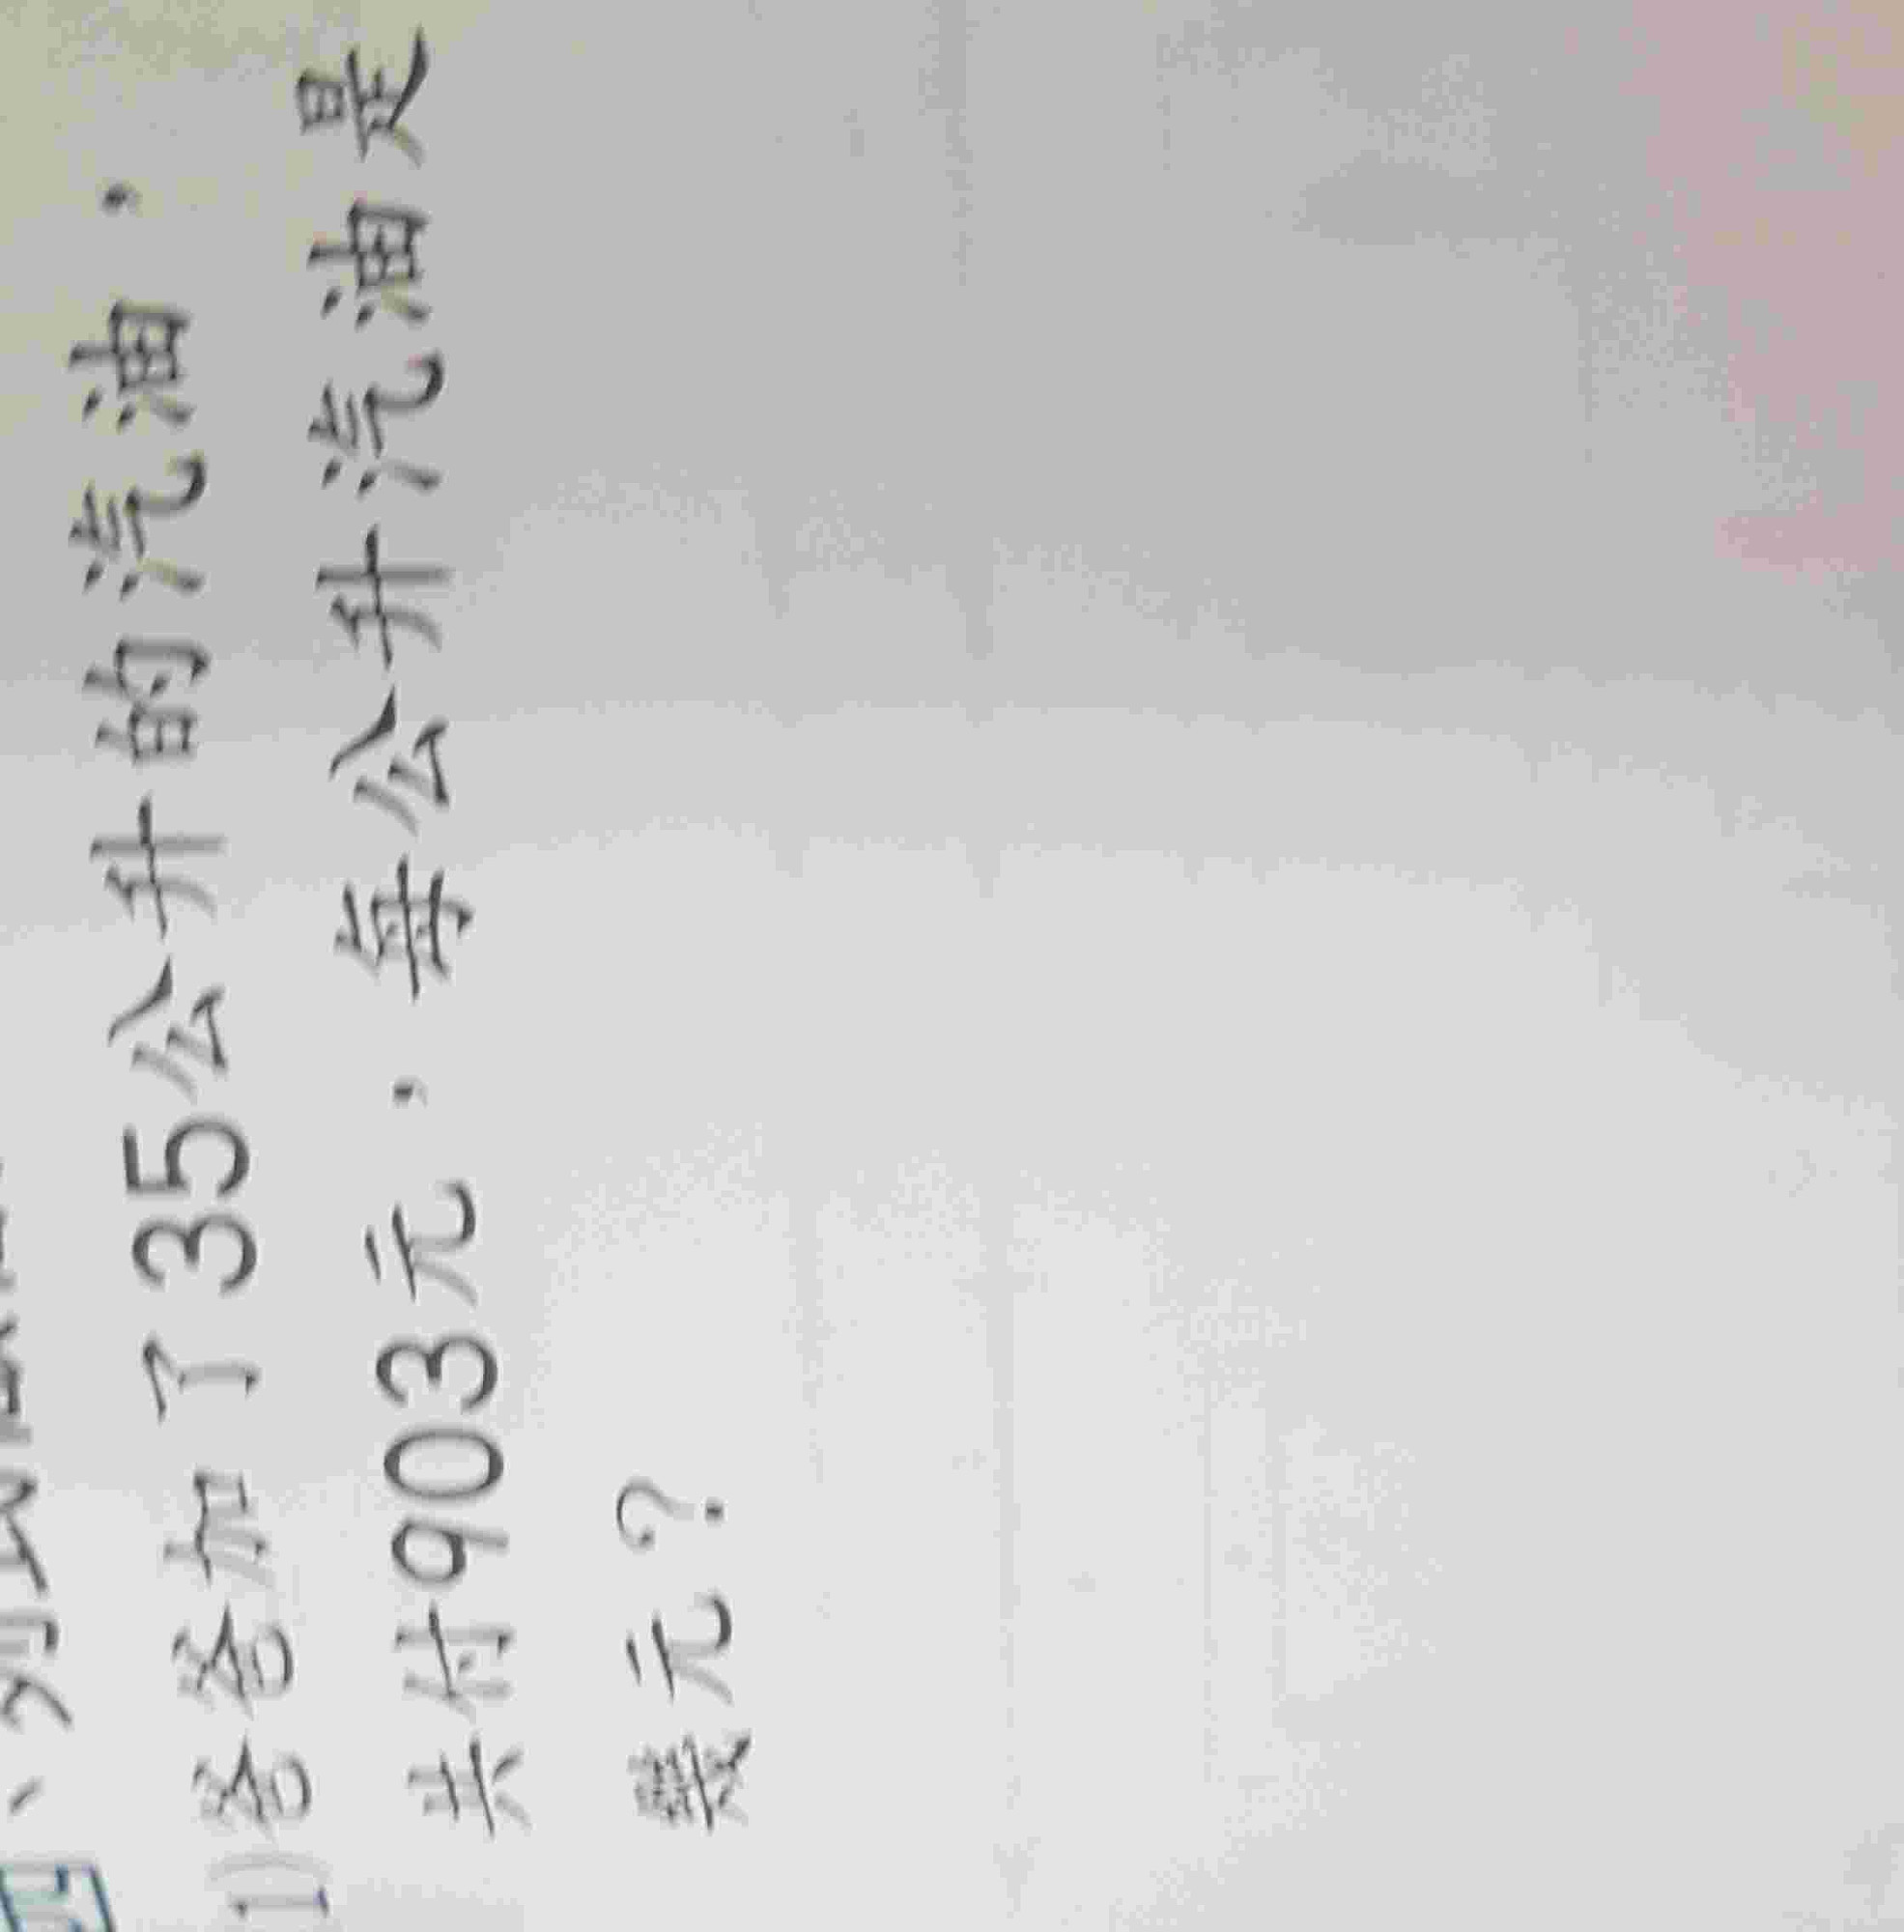 (1)爸爸加了35公升的汽油，
共付903元，每公升汽油是
幾元？